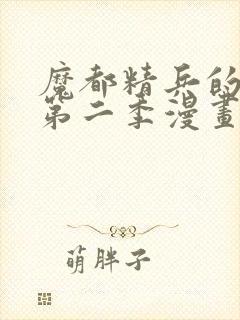 魔都精兵的
第二季漫畫
萌胖子